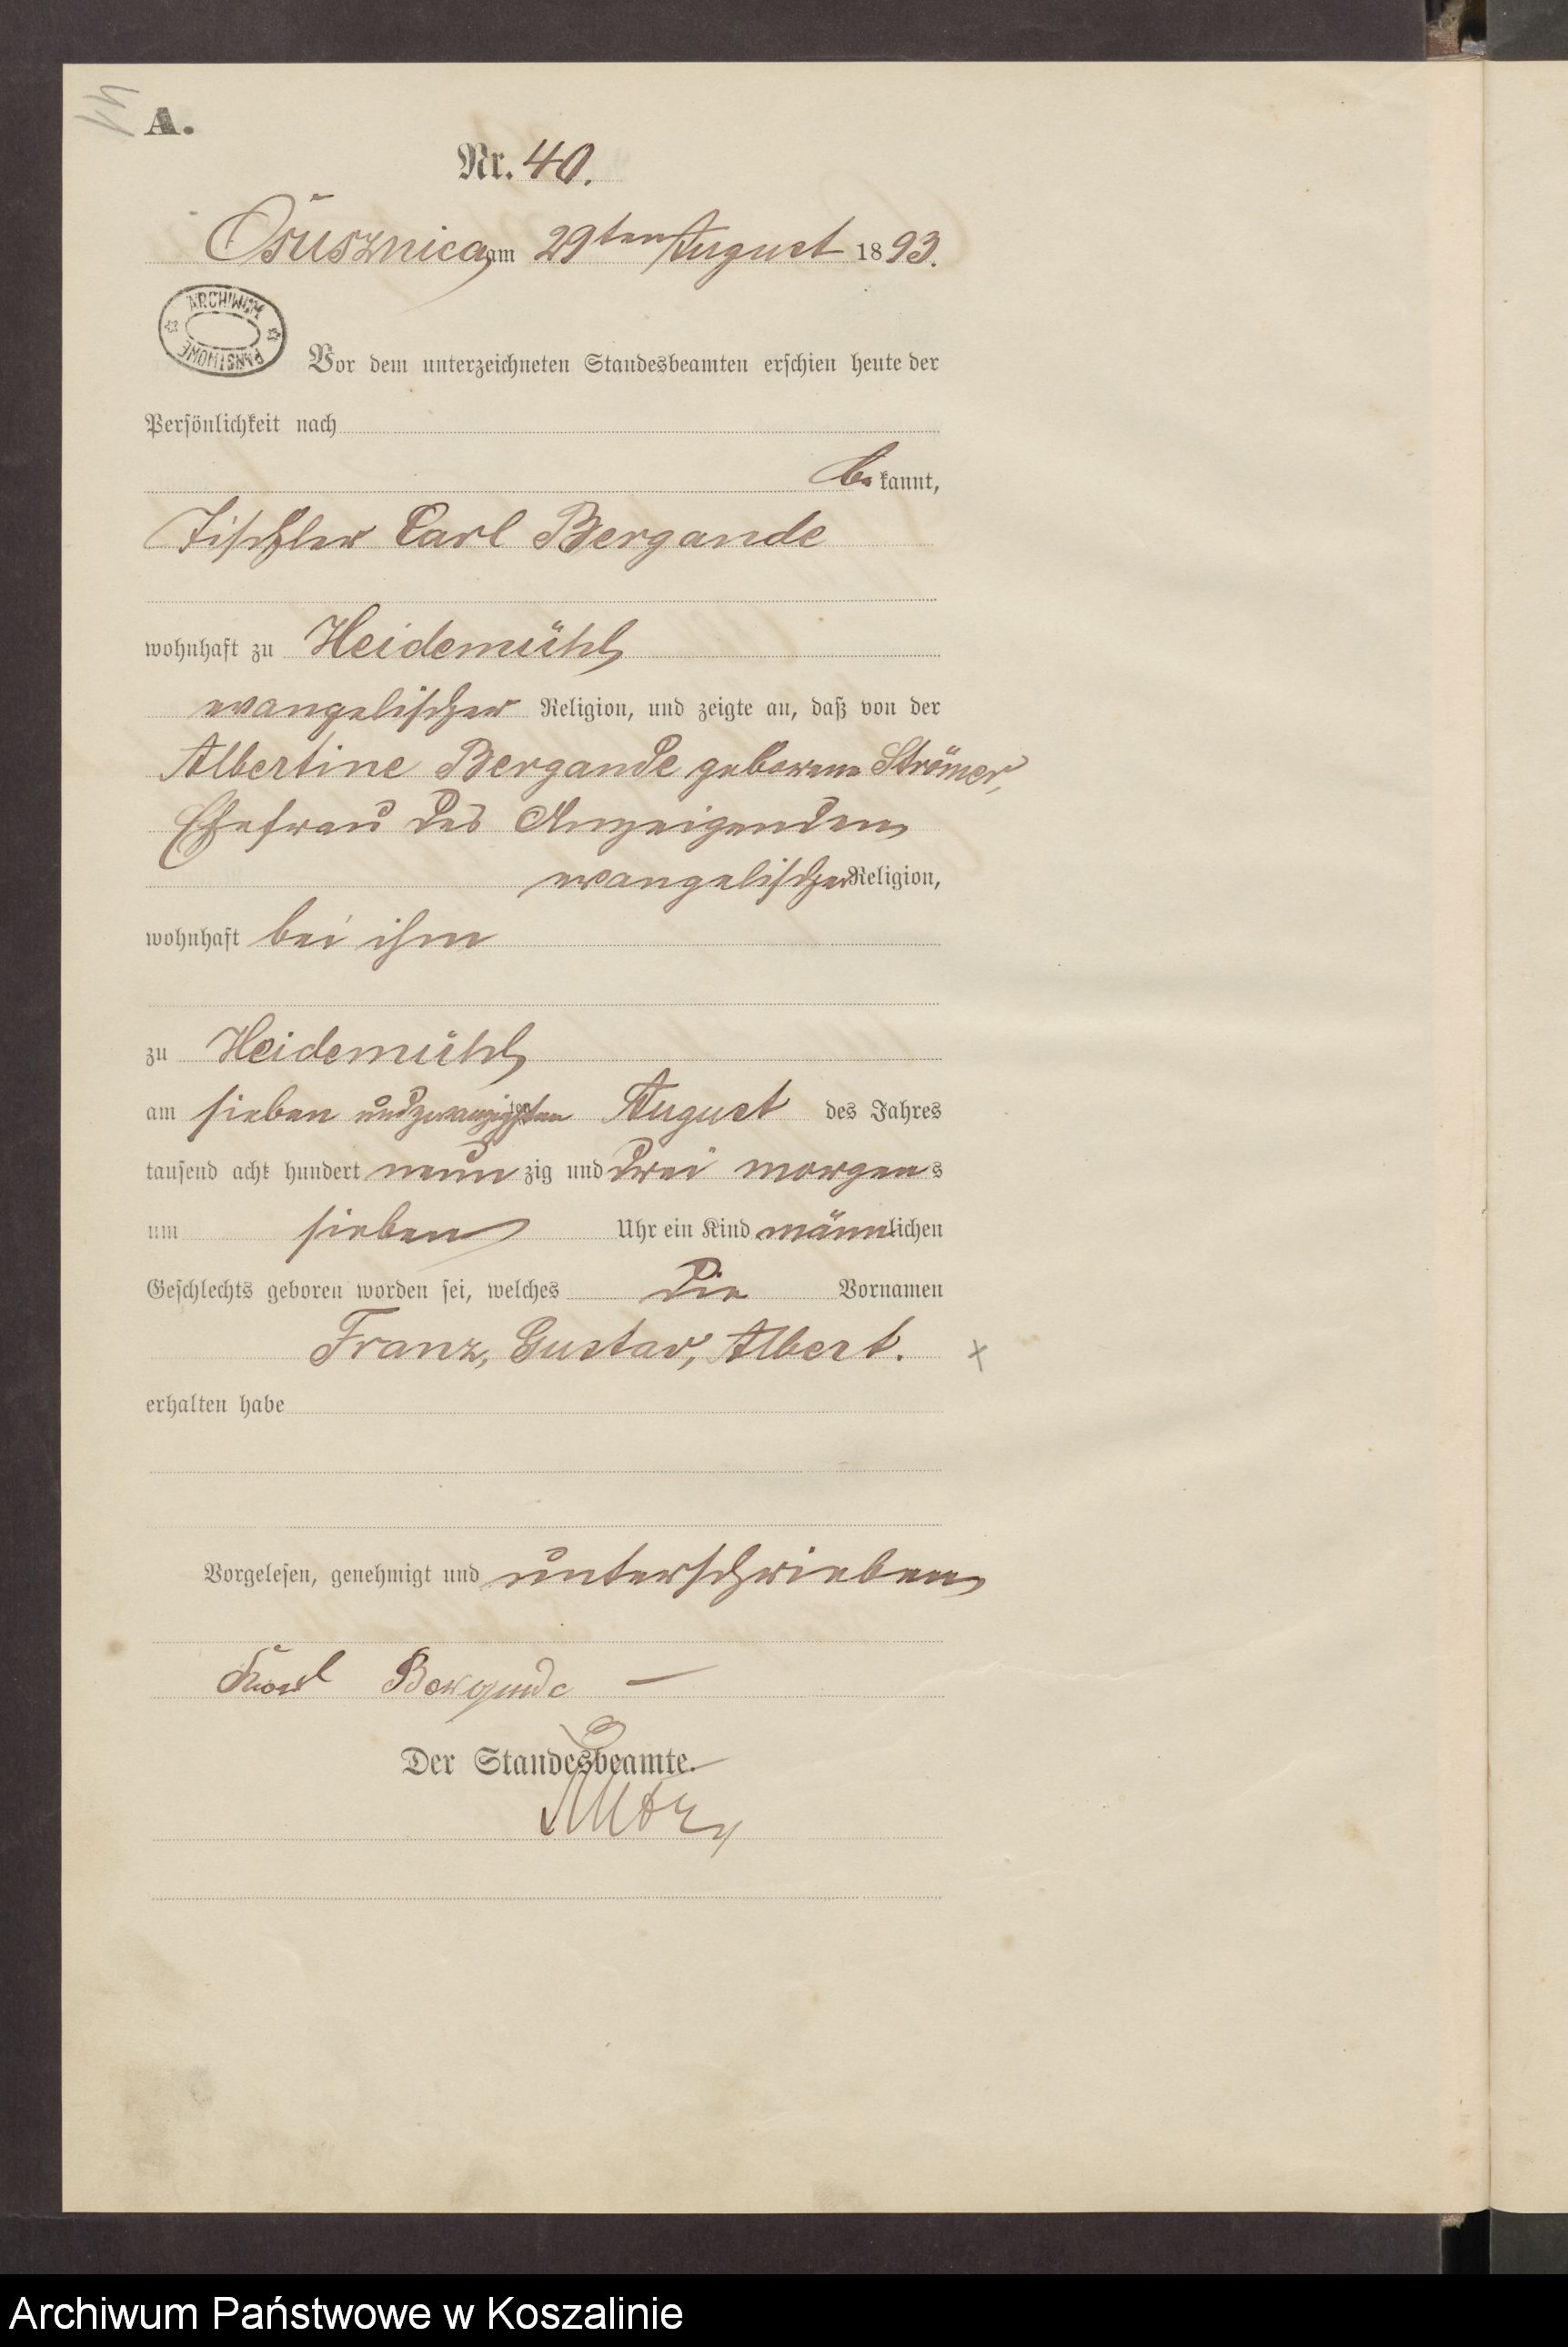 A.
Nr. 40.
Osusznica, am 29ten August 1893.
ARCHIWUM PAŃSTWOWE
Vor dem unterzeichneten Standesbeamten erschien heute der
Persönlichkeit nach
be kannt,
Tischler Carl Bergande
wohnhaft zu Heidemühl
evangelischer Religion, und zeigte an, daß von der
Albertine Bergande geborene Strömer,
Ehefrau des Anzeigenden
evangelischer Religion,
wohnhaft bei ihm
zu Heidemühl
am sieben undzwanzigsten August des Jahres
tausend acht hundert neun zig und drei morgens
um sieben Uhr ein Kind männlichen
Geschlechts geboren worden sei, welches die Vornamen
Franz, Gustav, Albert.
erhalten habe
Vorgelesen, genehmigt und unterschrieben
Karl Bergande
Der Standesbeamte.
Archiwum Państwowe w Koszalinie